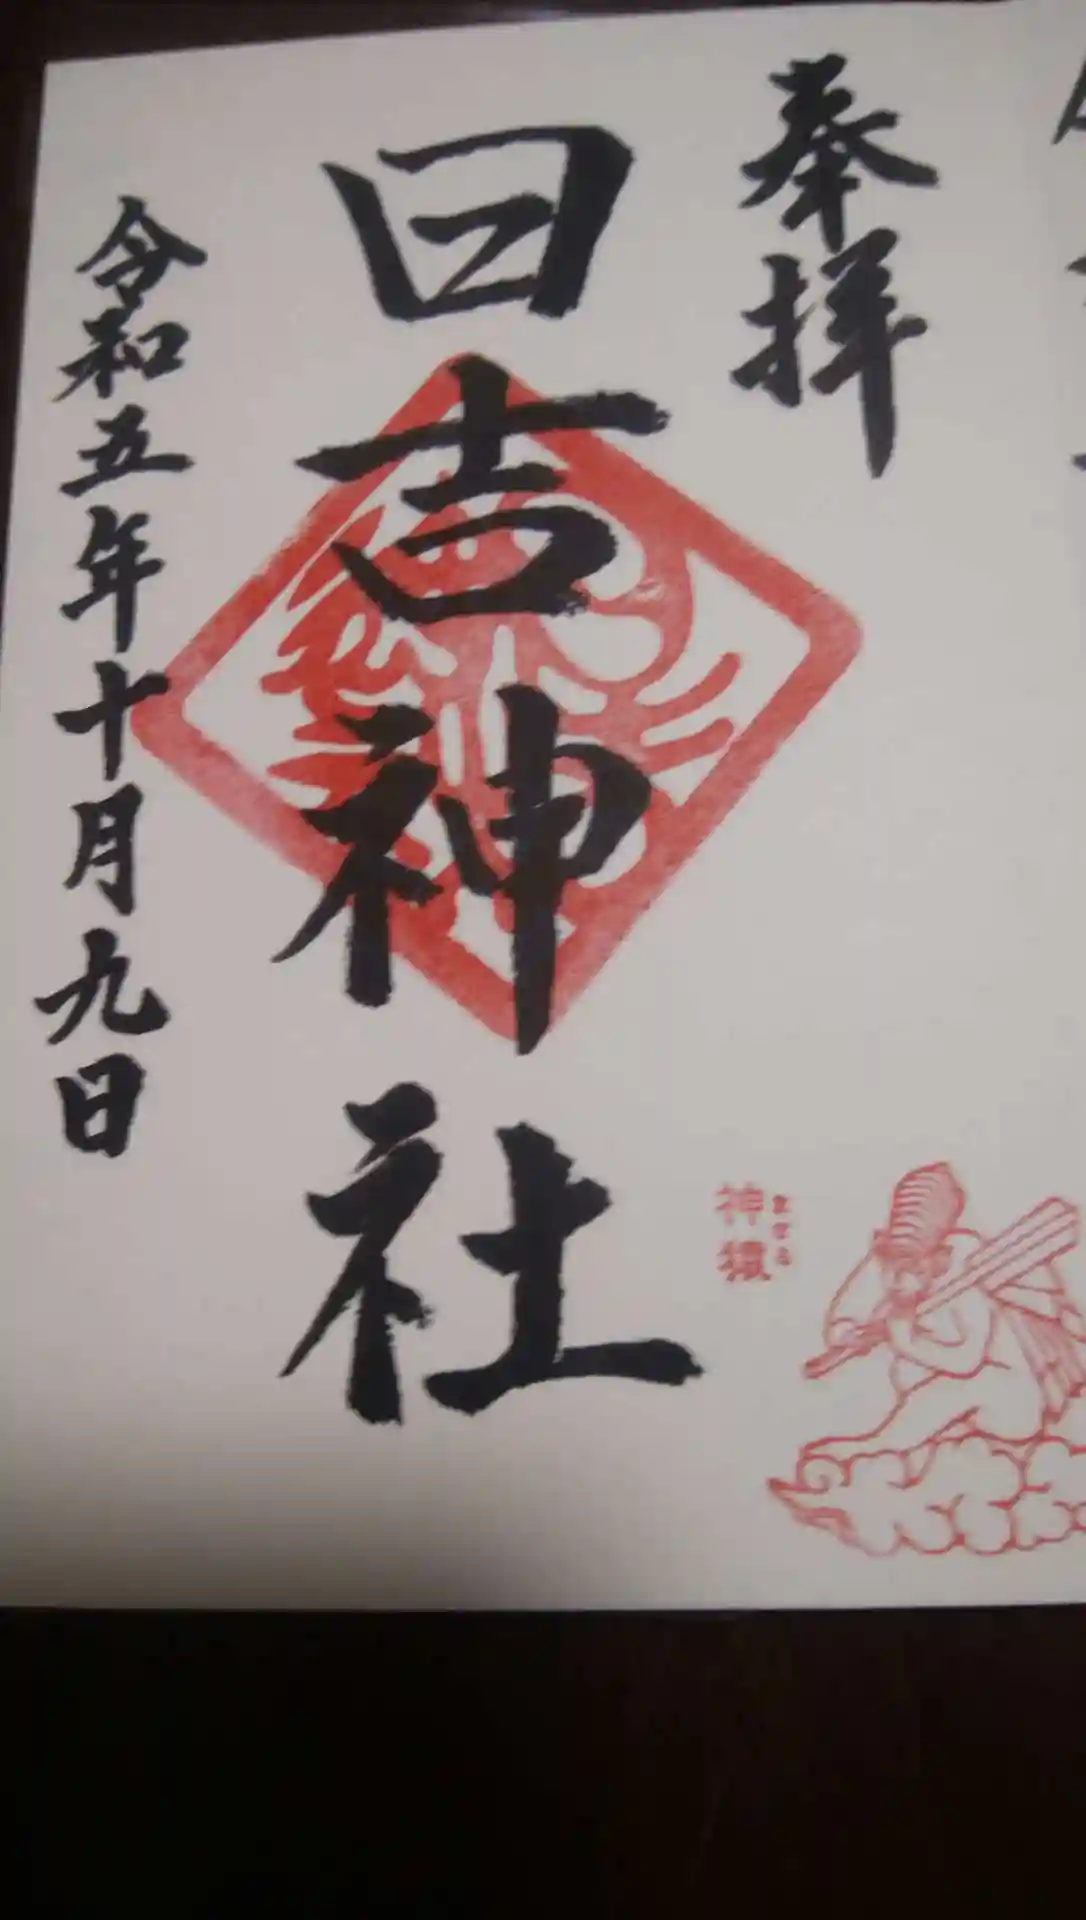 奉拝
日吉神社
令和五年十月九日
神猿
まさる